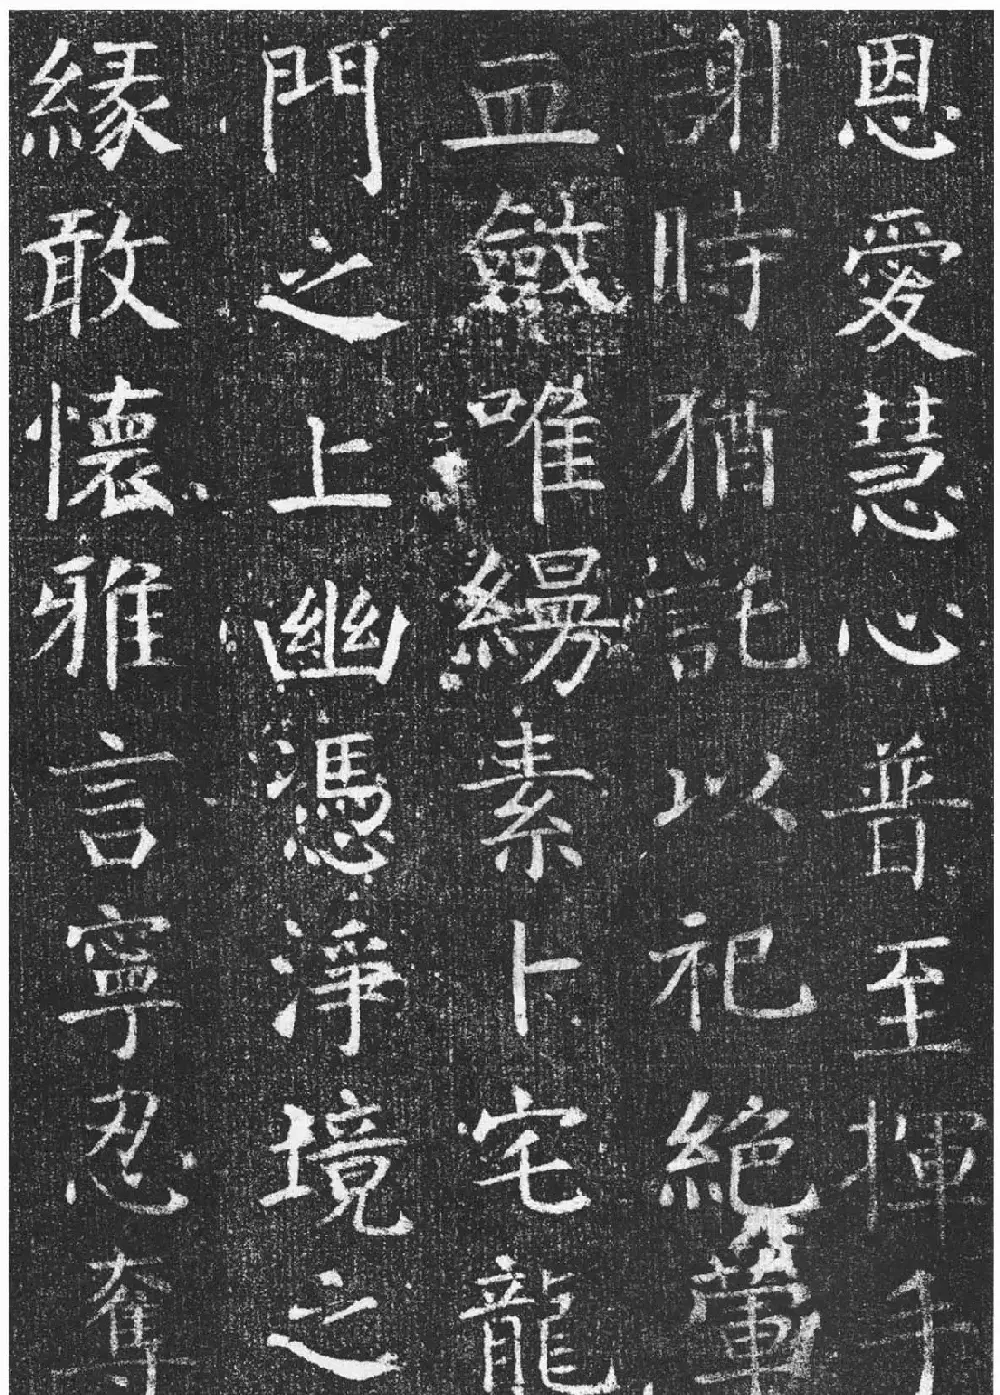 恩愛慧心普至揮手
謝時猶託以祀絕葷
血斂唯縵素卜宅龍
門之上幽憑淨境之
緣敢懷雅言寧忍奪